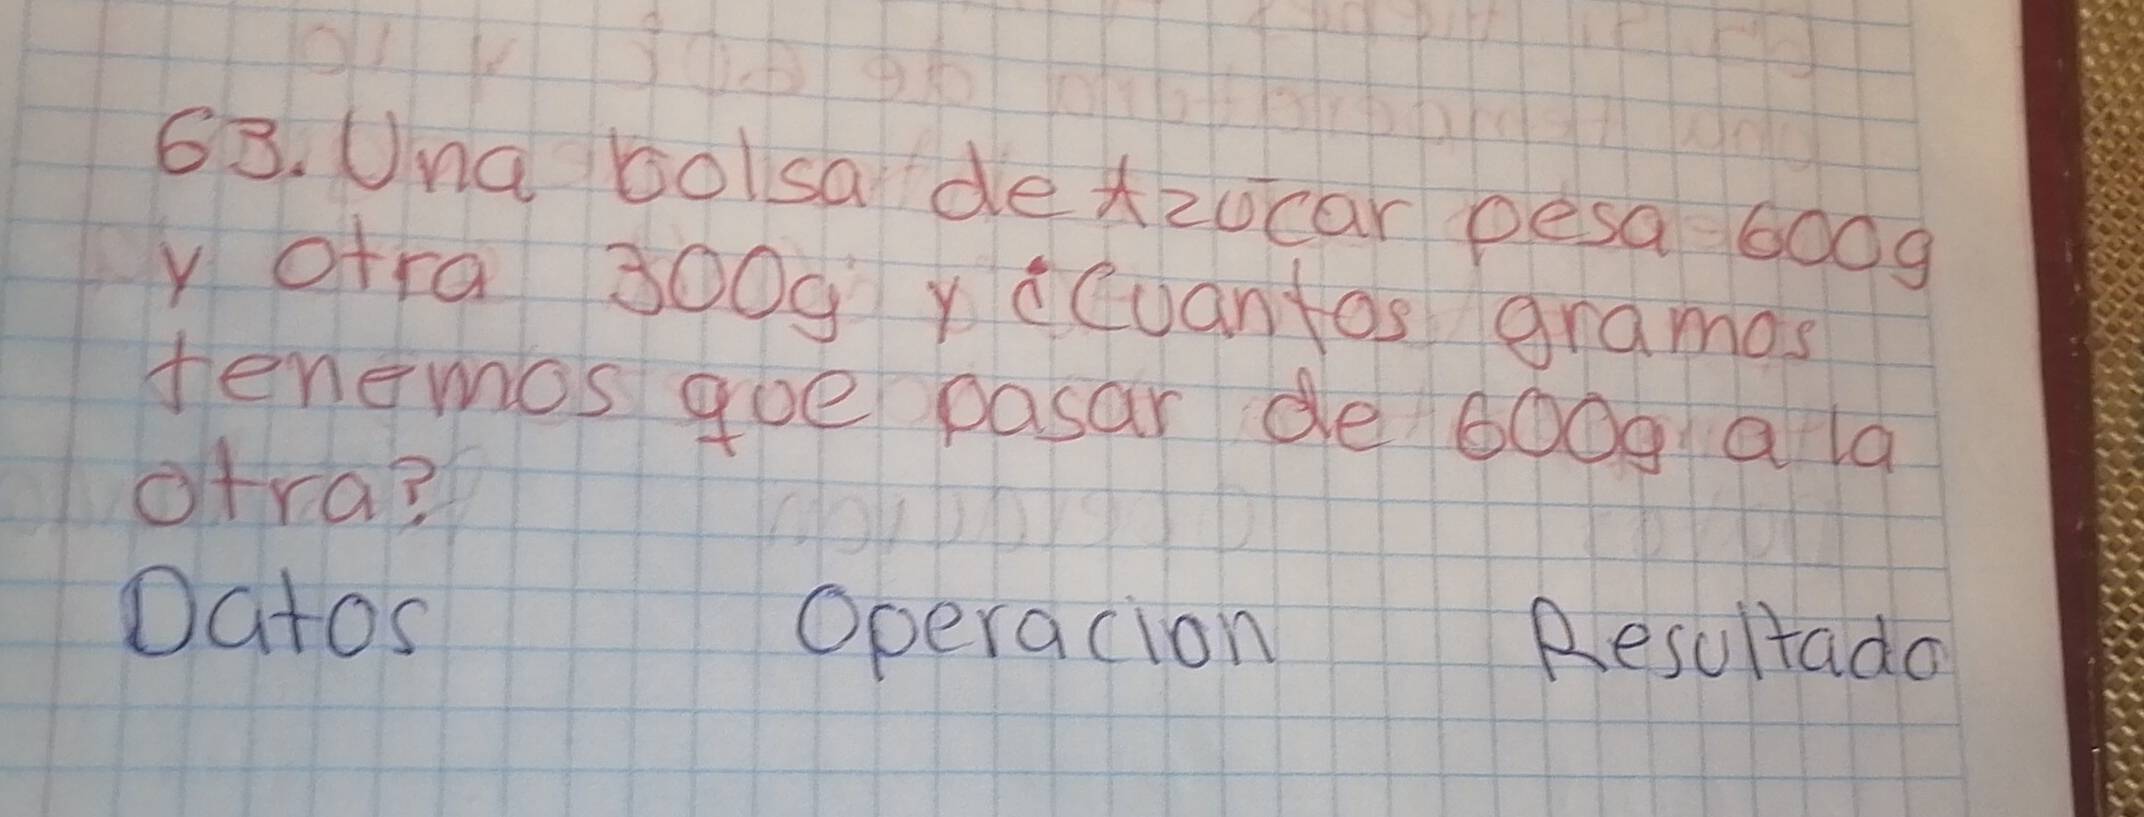 63. Una bolsa de Azucar pesa 600g
y otra 300g y ¿Cuantos gramos
tenemos que pasar de 600g a la
otra?
Datos Operacion Resultado